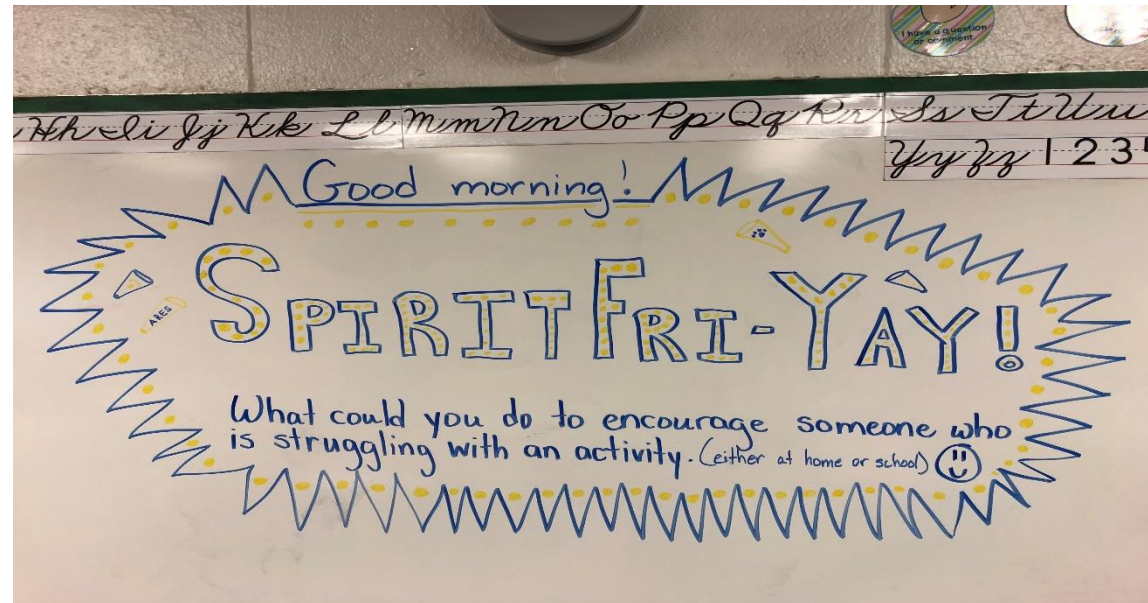 I have a question
or comment
Hh Ii Jj Kk Ll Mm Nn Oo Pp Qq Rr Ss Tt Uu
Yy Zz 1 2 3
Good morning!
SPIRIT FRI-YAY!
ARES
What could you do to encourage someone who
is struggling with an activity. (either at home or school)